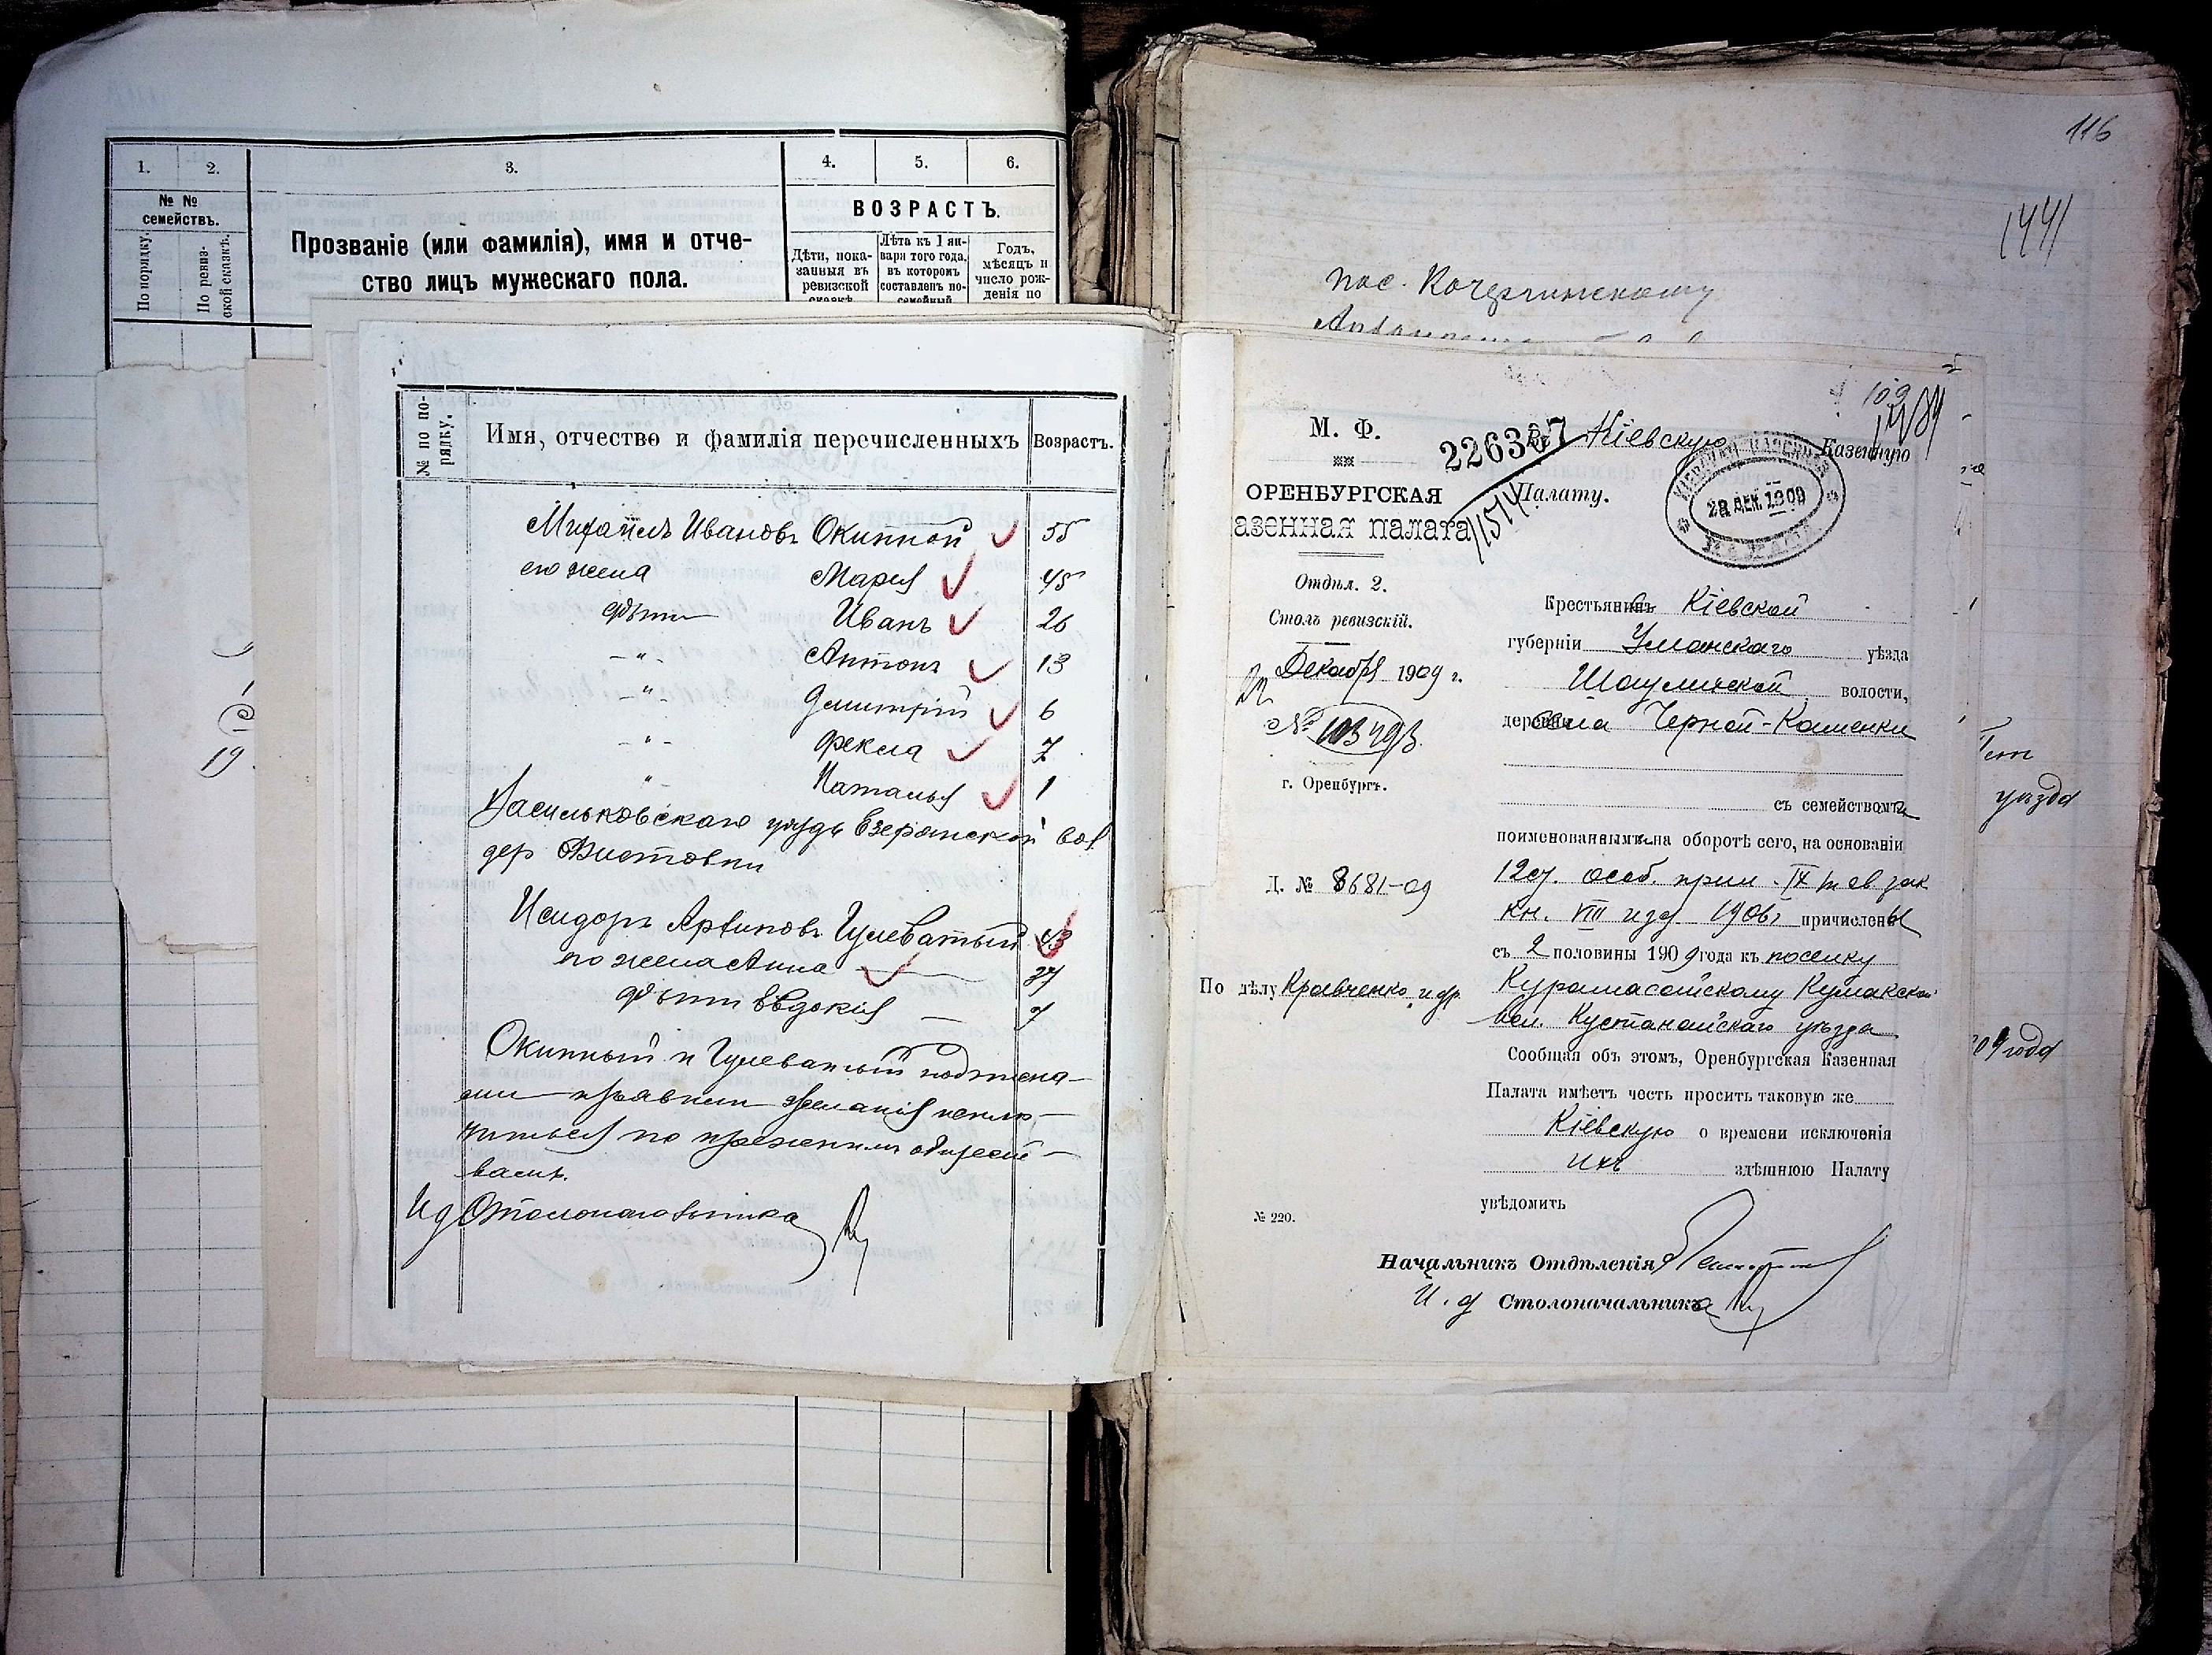 1.
2.
3.
4.
5.
6.
№ №
семействъ.
По порядку.
По ревиз-
ской сказкѣ.
Прозваніе (или фамилія), имя и отче-
ство лицъ мужескаго пола.
ВОЗРАСТЪ.
Дѣти, пока-
занныя въ
ревизской
сказкѣ
Лѣта къ 1 ян-
варя того года,
въ которомъ
составленъ по-
семейный
Годъ,
мѣсяцъ и
число рож-
денія по
19
№ по по-
рядку.
Имя, отчество и фамилія перечисленныхъ
Возрастъ.
Михаилъ Ивановъ Окипной 55
его жена Марія 45
дѣти Иванъ 26
-"- Антонъ 13
-"- Дмитрій 6
-"- Фекла 7
" Наталья 1
Васильковскаго уѣзда Езерянской вол
дер
Исидоръ Архиповъ Гулеватый 43
его жена Анна 37
дѣти Евдокія 7
Окипный и Гулеватый
желанія исклю-
читься по прежнимъ общест-
вамъ.
И д Столоначальника
116
1441
пос. Кочергинскому
109
М. Ф.
226367
Въ Кіевскую Казенную
Палату.
28 ДЕК. 1909
ОРЕНБУРГСКАЯ
азенная палата
11514
Отдѣл. 2.
Столъ ревизскій.
22 Декабря 1909 г.
№ 103493
г. Оренбургъ.
Д. № 8681-09
По дѣлу Кравченко и др.
Крестьянинъ Кіевской
губерніи Уманскаго уѣзда
волости,
села Черной-Каменки
съ семействомъ
поименованными на оборотѣ сего, на основаніи
12 ст. особ. прил. IX т св зак
кн. VIII изд 1906 г причислены
съ 2 половины 1909 года къ поселку
Курамасайскому Кумакской
вол. Кустанайскаго уѣзда
Сообщая объ этомъ, Оренбургская Казенная
Палата имѣетъ честь просить таковую же
Кіевскую о времени исключенія
ихъ здѣшнюю Палату
увѣдомить
№ 220.
Начальникъ Отдѣленія
И. д Столоначальника
уѣзда
09 года